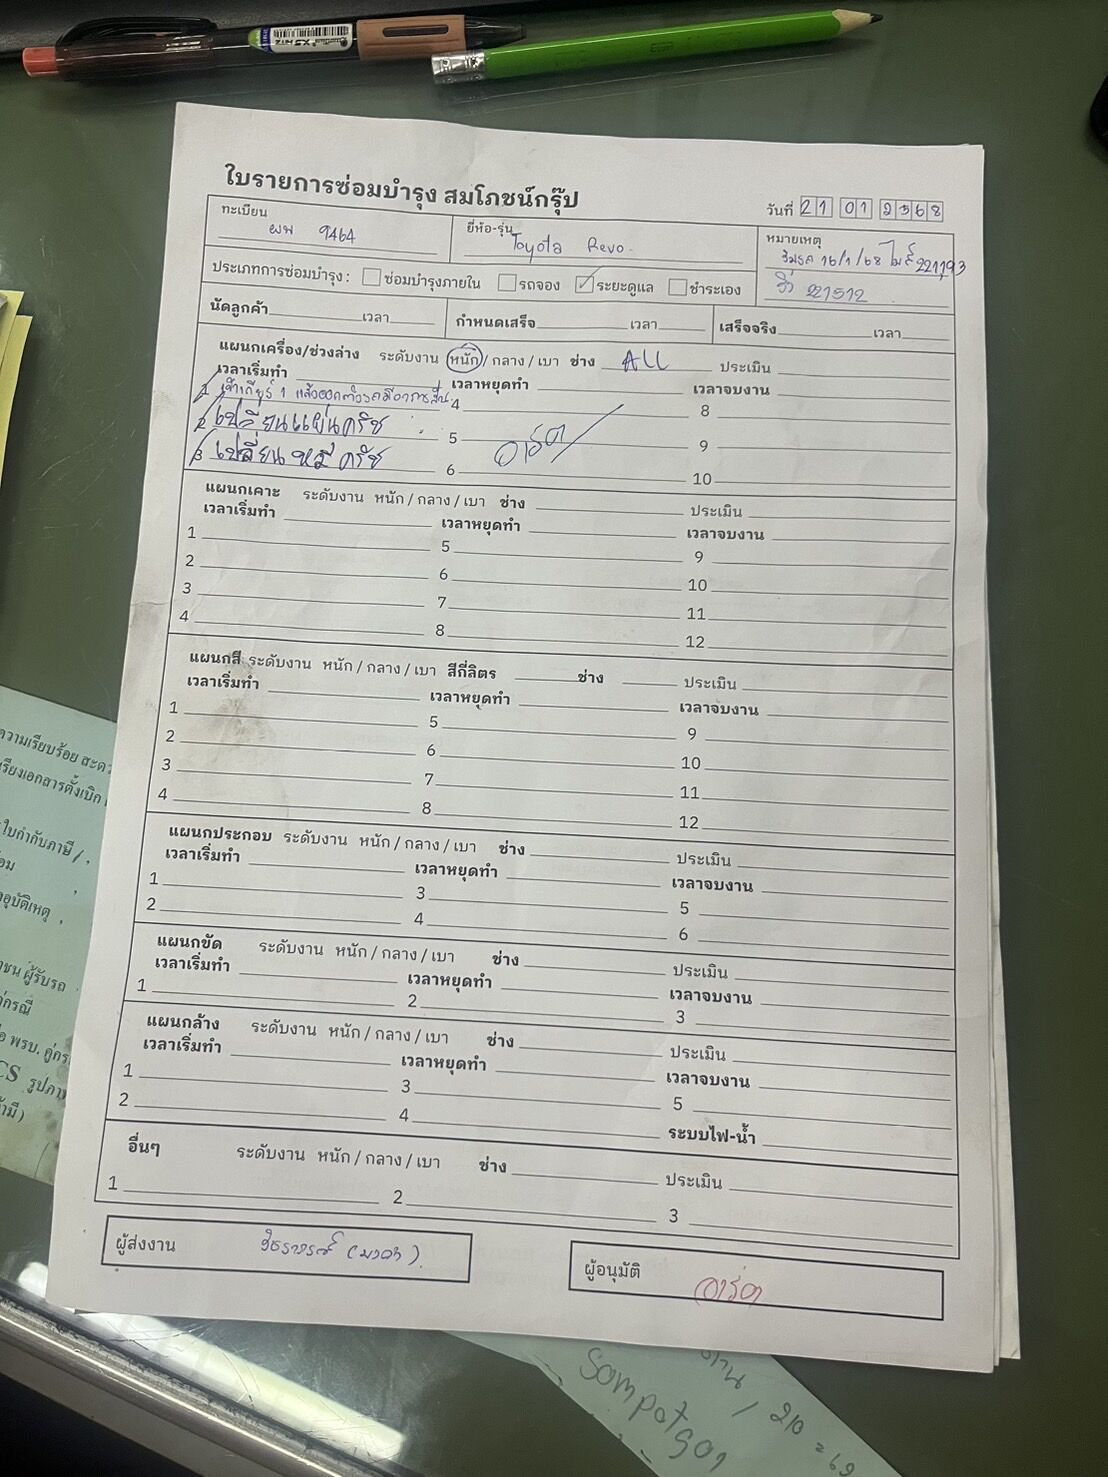 ใบรายการซ่อมบำรุง สมโภชน์กรุ๊ป
วันที่ 21 01 2568
ทะเบียน ผพ 9464
ยี่ห้อ-รุ่น Toyota Revo
หมายเหตุ
รับรถ 16/1/68 ไมล์ 221,193
วิ่ง 221512
ประเภทการซ่อมบำรุง : ซ่อมบำรุงภายใน รถจอง ✓ ระยะดูแล ชำระเอง
นัดลูกค้า เวลา กำหนดเสร็จ เวลา เสร็จจริง เวลา
แผนกเครื่อง/ช่วงล่าง ระดับงาน หนัก / กลาง / เบา ช่าง ALL ประเมิน
เวลาเริ่มทำ เวลาหยุดทำ เวลาจบงาน
1 เข้าเกียร์ 1 แล้วออกตัวรถมีอาการสั่น 4 8
2 เปลี่ยนแผ่นครัช 5 9
3 เปลี่ยนหวีครัช 6 10
อาร์ต
แผนกเคาะ ระดับงาน หนัก / กลาง / เบา ช่าง ประเมิน
เวลาเริ่มทำ เวลาหยุดทำ เวลาจบงาน
1 5 9
2 6 10
3 7 11
4 8 12
แผนกสี ระดับงาน หนัก / กลาง / เบา สีกี่ลิตร ช่าง ประเมิน
เวลาเริ่มทำ เวลาหยุดทำ เวลาจบงาน
1 5 9
2 6 10
3 7 11
4 8 12
แผนกประกอบ ระดับงาน หนัก / กลาง / เบา ช่าง ประเมิน
เวลาเริ่มทำ เวลาหยุดทำ เวลาจบงาน
1 3 5
2 4 6
แผนกขัด ระดับงาน หนัก / กลาง / เบา ช่าง ประเมิน
เวลาเริ่มทำ เวลาหยุดทำ เวลาจบงาน
1 2 3
แผนกล้าง ระดับงาน หนัก / กลาง / เบา ช่าง ประเมิน
เวลาเริ่มทำ เวลาหยุดทำ เวลาจบงาน
1 3 5
2 4 ระบบไฟ-น้ำ
อื่นๆ ระดับงาน หนัก / กลาง / เบา ช่าง ประเมิน
1 2 3
ผู้ส่งงาน
ผู้อนุมัติ อาร์ต
ความเรียบร้อย
เรียงเอกสารตั้งเบิก
ใบกำกับภาษี /
อุบัติเหตุ
ผู้รับรถ
คู่กรณี
พรบ.
CS
Sompotgor
210 = 69